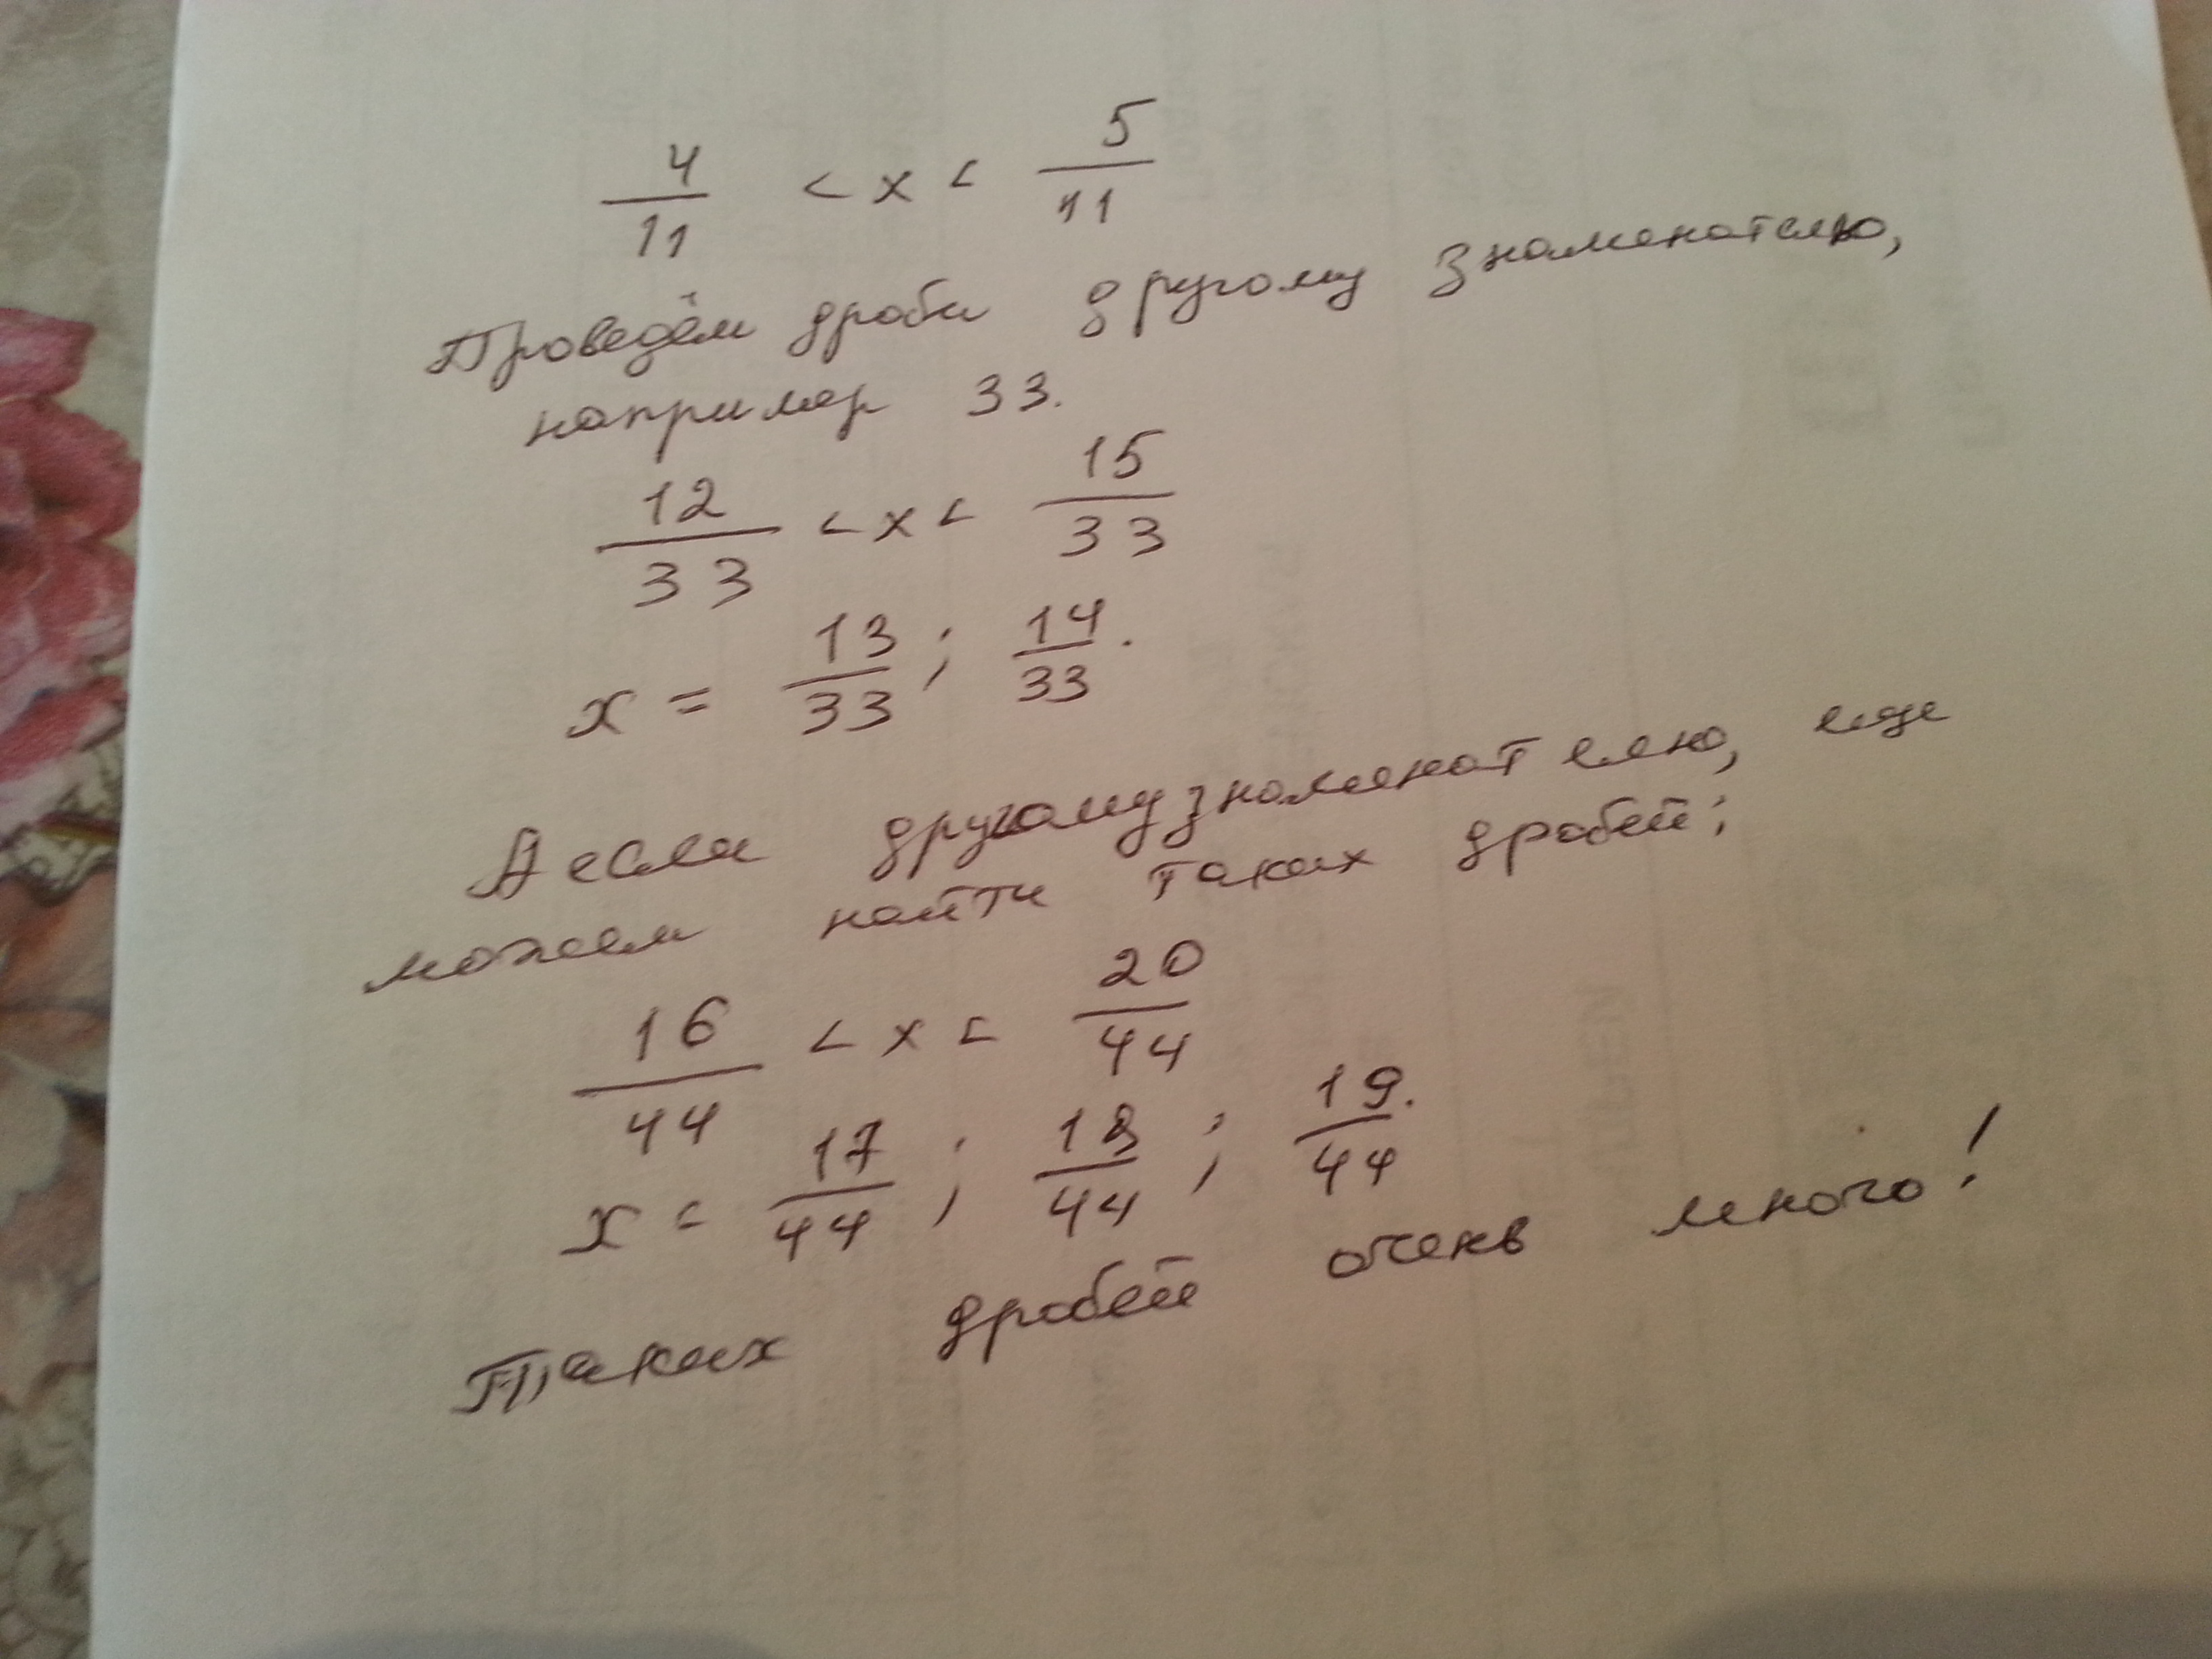 4/11 < x < 5/11
Проведём дроби другому знаменателю,
например 33.
12/33 < x < 15/33
x = 13/33 ; 14/33.
А если другому знаменателю, еще
можем найти таких дробей:
16/44 < x < 20/44
x = 17/44 ; 18/44 ; 19/44.
Таких дробей очень много!